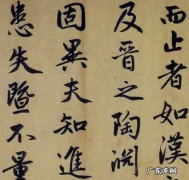 而止者如漢
及晉之陶閥
固異夫知進
患失暨不量
广东东网